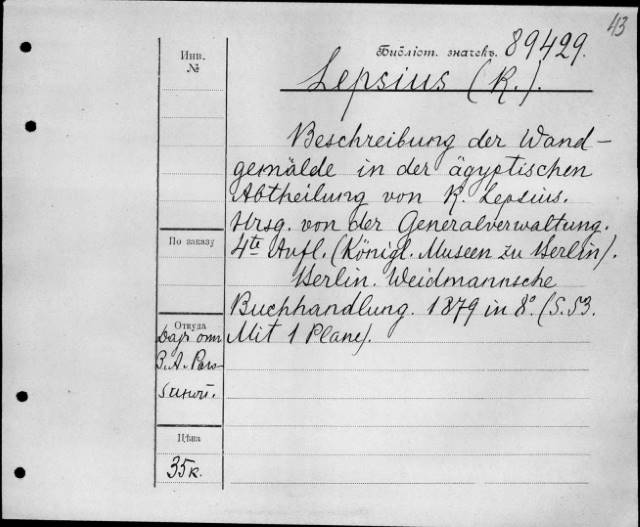 43
Инв.
№
Библіот. значекъ. 89429.
Lepsius (R.).
Beschreibung der Wand-
gemälde in der ägyptischen
Abtheilung von R. Lepsius.
Hrsg. von der Generalverwaltung.
4te Aufl. (Königl. Museen zu Berlin).
Berlin. Weidmannsche
Buchhandlung. 1879 in 8°. (S. 53.
Mit 1 Plane).
По заказу
Откуда
Даръ отъ
В. А.
Цѣна
35 к.